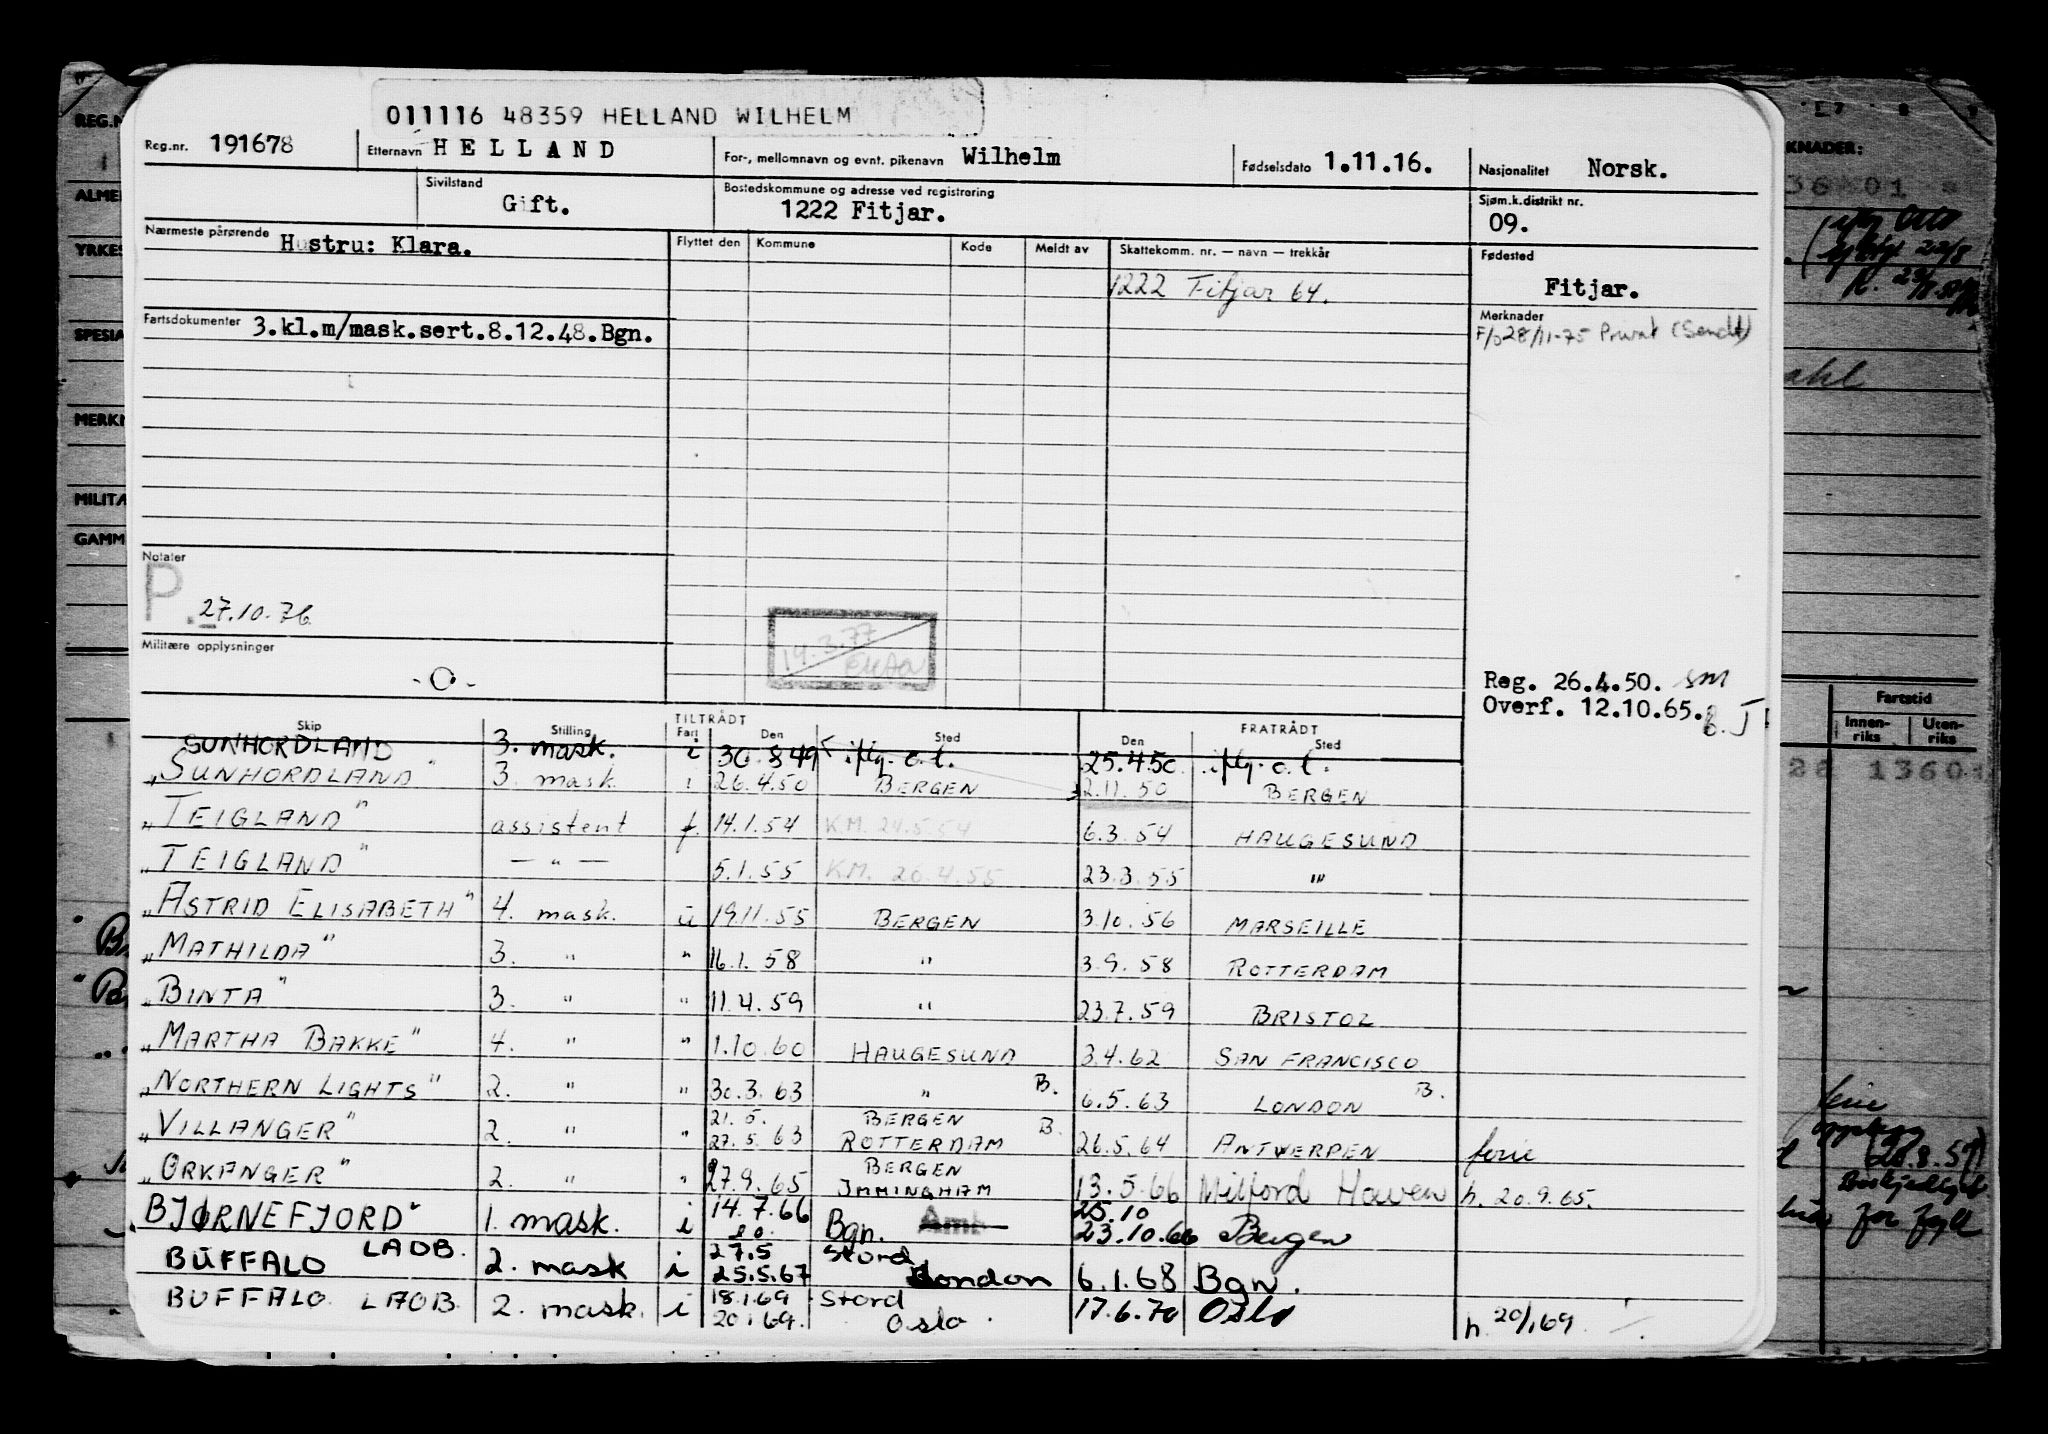 011116 48359 HELLAND WILHELM
Reg.nr. 191678 Etternavn HELLAND For-, mellomnavn og evnt. pikenavn Wilhelm Fødselsdato 1.11.16. Nasjonalitet Norsk.
Sivilstand Gift. Bostedskommune og adresse ved registrering 1222 Fitjar. Sjøm.k.distrikt nr. 09.
Nærmeste pårørende Hustru: Klara. Flyttet den Kommune Kode Meldt av Skattekomm. nr. — navn — trekkår Fødested
1222 Fitjar 64. Fitjar.
Fartsdokumenter 3.kl.m/mask.sert.8.12.48.Bgn. Merknader
F/o 28/11-75 Privat (Sendt)
Notater
P. 27.10.76
14.3.77
Militære opplysninger
-O-
Reg. 26.4.50. sm
Overf. 12.10.65.
Skip Stilling TILTRÅDT Fart Den Sted FRATRÅDT Den Sted
SUNHORDLAND 3. mask. i 30.8 49 iflg. o.l. 25.4.50. iflg. o.l.
"SUNHORDLAND" 3. mask i 26.4.50 BERGEN 2.11.50 BERGEN
"TEIGLAND" assistent f. 14.1.54 K.M. 24.5.54 6.3.54 HAUGESUND
"TEIGLAND" — " — 5.1.55 K.M. 20.4.55 23.3.55 "
"ASTRID ELISABETH" 4. mask. u 19.11.55 BERGEN 3.10.56 MARSEILLE
"MATHILDA" 3. " " 16.1.58 " 3.9.58 ROTTERDAM
"BINTA" 3. " " 11.4.59 " 23.7.59 BRISTOL
"MARTHA BAKKE" 4. " " 1.10.60 HAUGESUND 3.4.62 SAN FRANCISCO
"NORTHERN LIGHTS" 2. " " 30.3.63 " B. 6.5.63 LONDON B.
"VILLANGER" 2. " " 21.5. 27.5.63 BERGEN ROTTERDAM B. 26.5.64 ANTWERPEN ferie
"ORKANGER" 2. " " 27.9.65 BERGEN IMMINGHAM 13.5.66 Milford Haven h. 20.9.65.
"BJØRNEFJORD" 1. mask. i 14.7.66 Bgn. 25.10 23.10.66 Bergen
BUFFALO LADB. 2. mask i 27.5 25.5.67 Stord London 6.1.68 Bgn.
BUFFALO LADB. 2. mask. i 18.1.69 20.1.69. Stord Oslo. 17.6.70 Oslo h. 20/1.69
REG.N
ALME
YRKES
SPESIA
MERKN
MILITÆ
GAMM
KNADER:
Fartstid
Innenriks Utenriks
13601
ferie